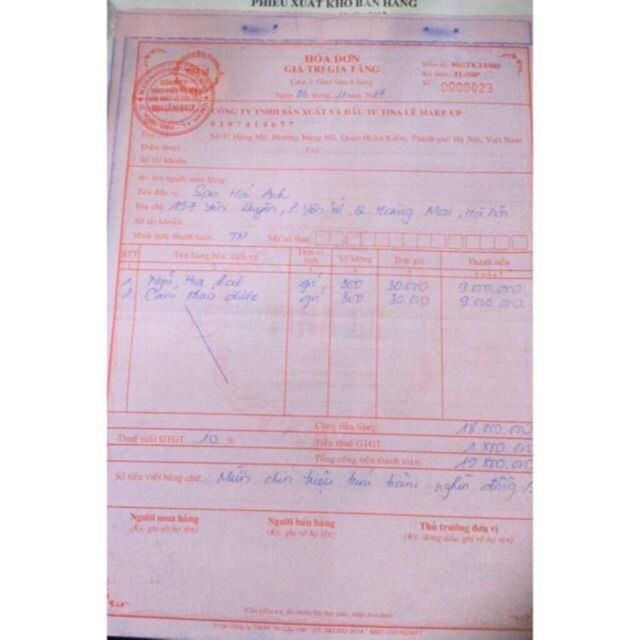 PHIẾU XUẤT KHO BÁN HÀNG
HÓA ĐƠN
GIÁ TRỊ GIA TĂNG
Liên 2: Giao khách hàng
Ngày 06 năm
Mẫu số: 01GTKT3/001
Ký hiệu: TL/16P
Số: 0000023
CÔNG TY TNHH SẢN XUẤT VÀ ĐẦU TƯ TINA LÊ MAKE UP
0107414677
Số 41 Hàng Mã, Phường Hàng Mã, Quận Hoàn Kiếm, Thành phố Hà Nội, Việt Nam
Điện thoại: Fax:
Số tài khoản:
Họ tên người mua hàng:
Tên đơn vị: Spa Hải Anh
Địa chỉ: 157 Yên Duyên, P. Yên Sở, Q Hoàng Mai, Hà Nội
Số tài khoản:
Hình thức thanh toán: TM Mã số thuế:
STT Tên hàng hóa, dịch vụ Đơn vị tính Số lượng Đơn giá Thành tiền
1 300 30.000 9.000.000
2 Cam thảo 300 30.000 9.000.000
Cộng tiền hàng: 18.000.000
Thuế suất GTGT: 10 % Tiền thuế GTGT: 1.800.000
Tổng cộng tiền thanh toán: 19.800.000
Số tiền viết bằng chữ: Mười chín triệu tám trăm nghìn đồng
Người mua hàng Người bán hàng Thủ trưởng đơn vị
(Ký, ghi rõ họ tên) (Ký, ghi rõ họ tên) (Ký, đóng dấu, ghi rõ họ tên)